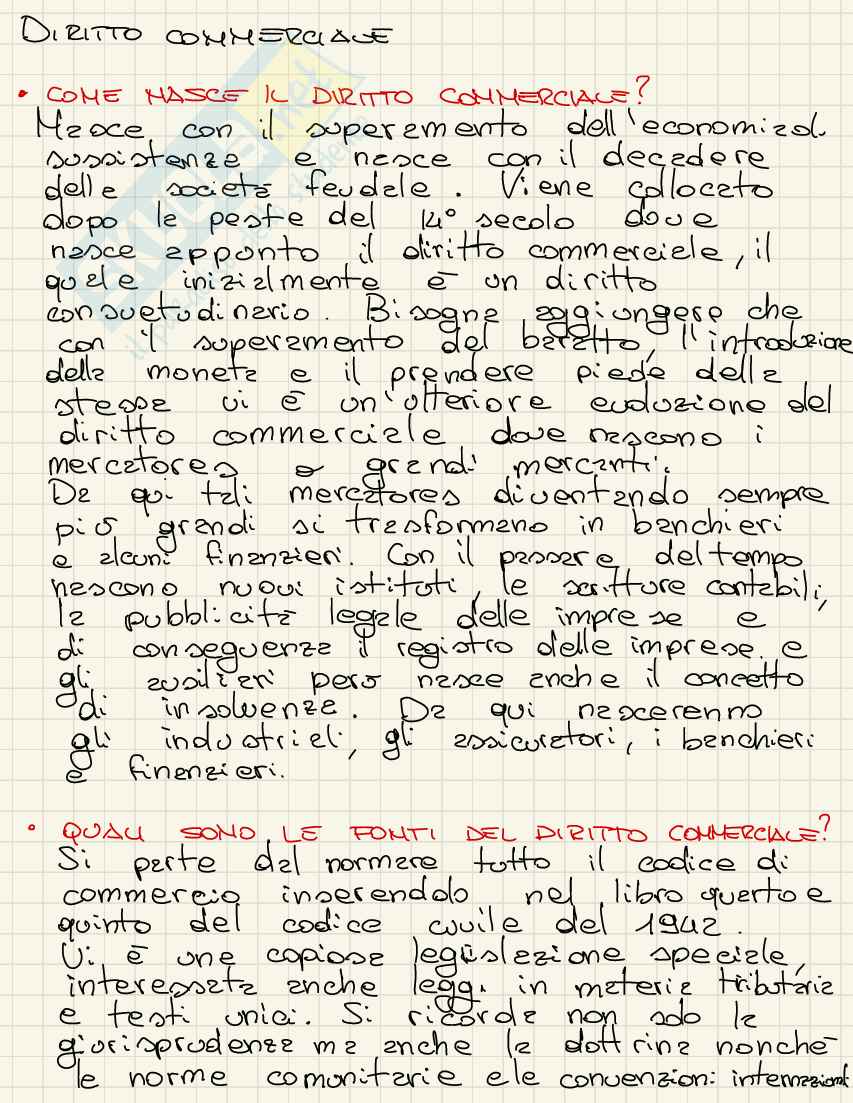 DIRITTO COMMERCIALE
• COME NASCE IL DIRITTO COMMERCIALE?
Nasce con il superamento dell'economia di
sussistenza e nasce con il decadere
della società feudale. Viene collocato
dopo la peste del 14° secolo dove
nasce appunto il diritto commerciale, il
quale inizialmente è un diritto
consuetudinario. Bisogna aggiungere che
con il superamento del baratto, l'introduzione
della moneta e il prendere piede della
stessa vi è un'ulteriore evoluzione del
diritto commerciale dove nascono i
mercatores o grandi mercanti.
Da qui tali mercatores diventando sempre
più grandi si trasformano in banchieri
e alcuni finanzieri. Con il passare del tempo
nascono nuovi istituti, le scritture contabili,
la pubblicità legale delle imprese e
di conseguenza il registro delle imprese e
gli ausiliari però nasce anche il concetto
di insolvenza. Da qui nasceranno
gli industriali, gli assicuratori, i banchieri
e finanzieri.
• QUALI SONO LE FONTI DEL DIRITTO COMMERCIALE?
Si parte dal normare tutto il codice di
commercio inserendolo nel libro quarto e
quinto del codice civile del 1942.
Vi è una copiosa legislazione speciale,
interessata anche leggi in materia tributaria
e testi unici. Si ricorda non solo la
giurisprudenza ma anche la dottrina nonché
le norme comunitarie e le convenzioni internazionali
SKUOLA.net
il paradiso dello studente